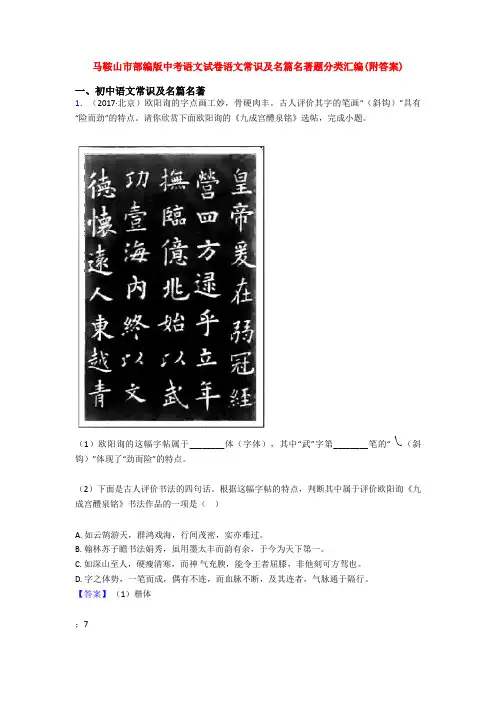 马鞍山市部编版中考语文试卷语文常识及名篇名著题分类汇编(附答案)
一、初中语文常识及名篇名著
1．（2017·北京）欧阳询的字点画工妙，骨硬肉丰。古人评价其字的笔画“（斜钩）”具有
“险而劲”的特点。请你欣赏下面欧阳询的《九成宫醴泉铭》选帖，完成小题。
皇帝爰在弱冠經
營四方逯乎立年
撫臨億兆始以武
功壹海内終以文
德懷遠人東越青
（1）欧阳询的这幅字帖属于________体（字体），其中“武”字第________笔的“㇂（斜
钩）”体现了“劲而险”的特点。
（2）下面是古人评价书法的四句话。根据这幅字帖的特点，判断其中属于评价欧阳询《九
成宫醴泉铭》书法作品的一项是（ ）
A. 如云鹄游天，群鸿戏海，行间茂密，实亦难过。
B. 翰林苏子瞻书法娟秀，虽用墨太丰而韵有余，于今为天下第一。
C. 如深山至人，硬瘦清寒，而神 气充腴，能令王者屈膝，非他刻可方驾也。
D. 字之体势，一笔而成，偶有不连，而血脉不断，及其连者，气脉通于隔行。
【答案】（1）楷体
；7